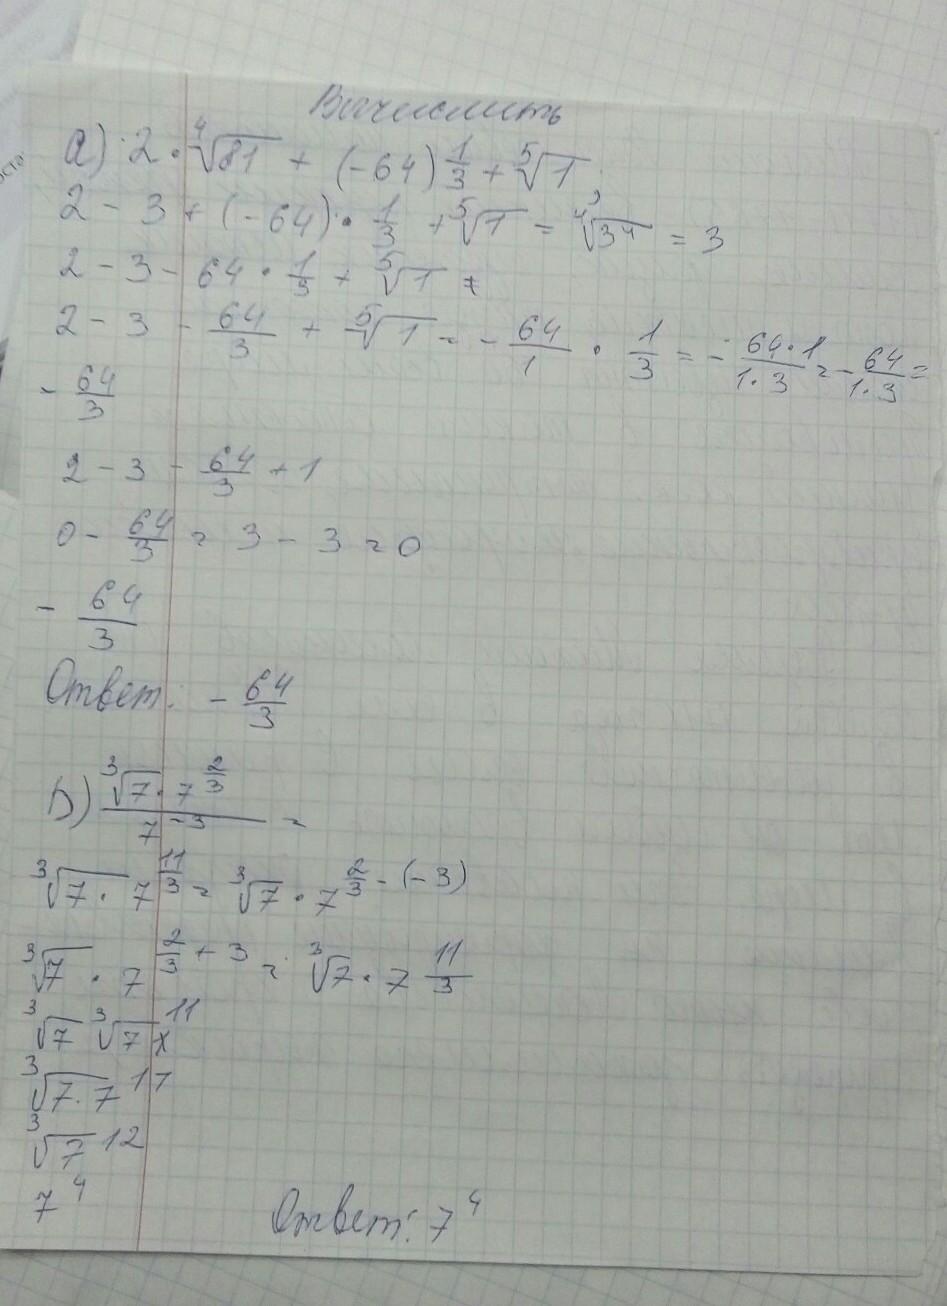 Вычислить
а) 2 · ⁴√81 + (-64) 1/3 + ⁵√1,
2 - 3 + (-64) · 1/3 + ⁵√1 = ⁴√3⁴ = 3
2 - 3 - 64 · 1/3 + ⁵√1 =
2 - 3 - 64/3 + ⁵√1 = - 64/1 · 1/3 = - 64·1/1·3 = - 64/1·3 =
- 64/3
2 - 3 - 64/3 + 1
0 - 64/3 = 3 - 3 = 0
- 64/3
Ответ: - 64/3
b) ³√7 · 7^(2/3) / 7^(-3) =
³√7 · 7^(11/3) = ³√7 · 7^(2/3 - (-3))
³√7 · 7^(2/3 + 3) = ³√7 · 7 11/3
³√7 ³√7 x¹¹
³√7·7 ¹¹
³√7 ¹²
7⁴ Ответ: 7⁴